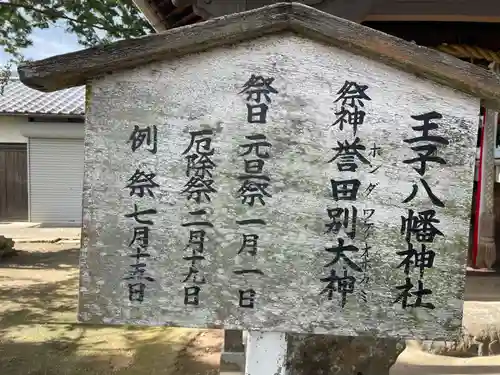 王子八幡神社
祭神 誉田別大神
ホンダワケオオカミ
祭日 元旦祭 一月一日
厄除祭 二月十九日
例祭 七月十五日